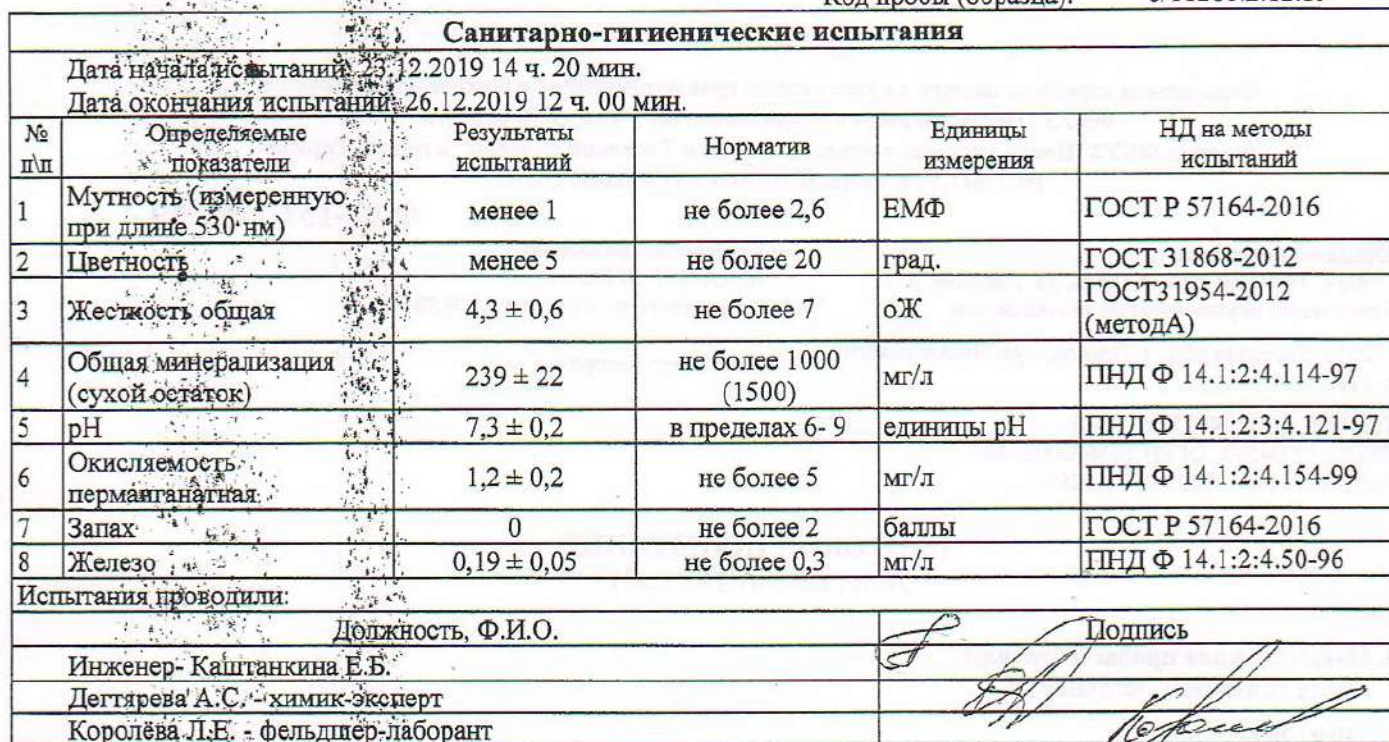 Код пробы (образца):
Санитарно-гигиенические испытания
Дата начала испытаний: 23.12.2019 14 ч. 20 мин.
Дата окончания испытаний: 26.12.2019 12 ч. 00 мин.
№ п\п Определяемые показатели Результаты испытаний Норматив Единицы измерения НД на методы испытаний
1 Мутность (измеренную при длине 530 нм) менее 1 не более 2,6 ЕМФ ГОСТ Р 57164-2016
2 Цветность менее 5 не более 20 град. ГОСТ 31868-2012
3 Жесткость общая 4,3 ± 0,6 не более 7 оЖ ГОСТ31954-2012 (методА)
4 Общая минерализация (сухой остаток) 239 ± 22 не более 1000 (1500) мг/л ПНД Ф 14.1:2:4.114-97
5 pH 7,3 ± 0,2 в пределах 6- 9 единицы pH ПНД Ф 14.1:2:3:4.121-97
6 Окисляемость перманганатная 1,2 ± 0,2 не более 5 мг/л ПНД Ф 14.1:2:4.154-99
7 Запах 0 не более 2 баллы ГОСТ Р 57164-2016
8 Железо 0,19 ± 0,05 не более 0,3 мг/л ПНД Ф 14.1:2:4.50-96
Испытания проводили:
Должность, Ф.И.О. Подпись
Инженер- Каштанкина Е.Б.
Дегтярева А.С. - химик-эксперт
Королёва Л.Е. - фельдшер-лаборант